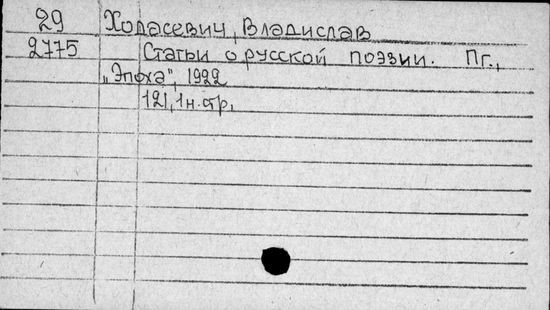 29 Ходасевич, Владислав
2775 Статьи о русской поэзии. Пг.,
„Эпоха", 1922
121, 1 н. стр.